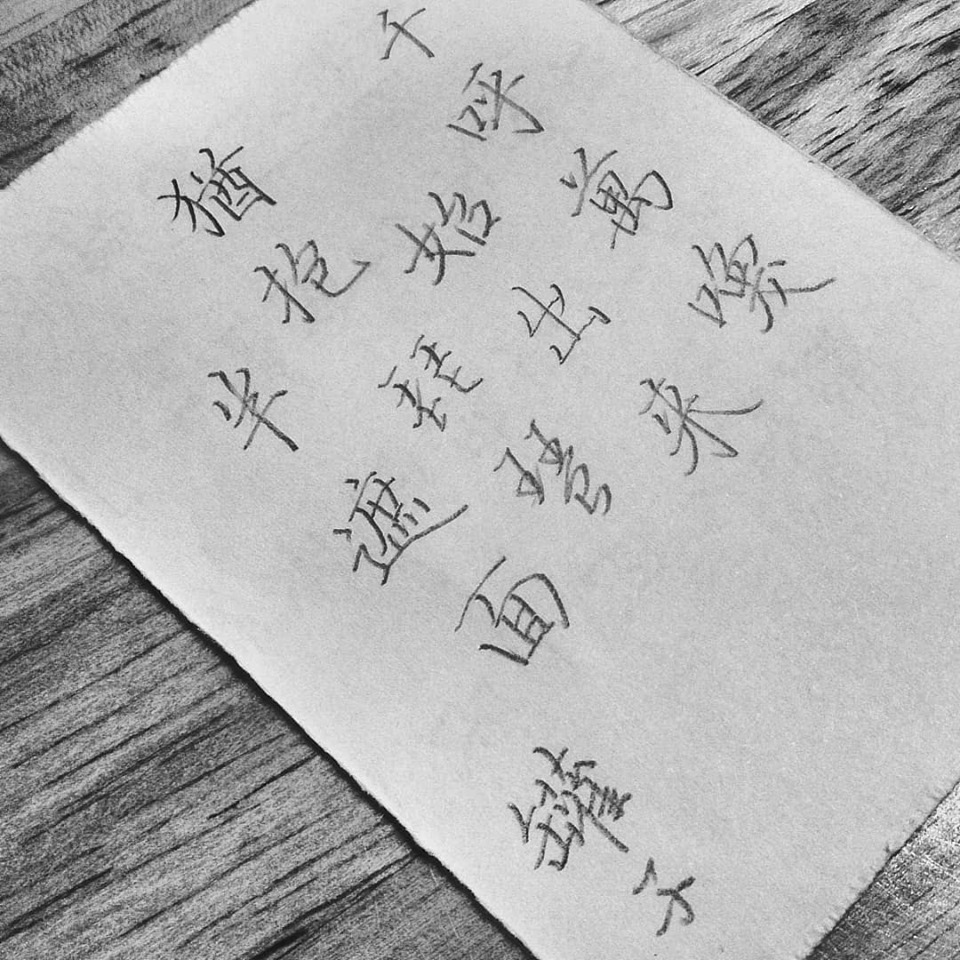 千呼萬喚
始出来
猶抱琵琶
半遮面
罐子